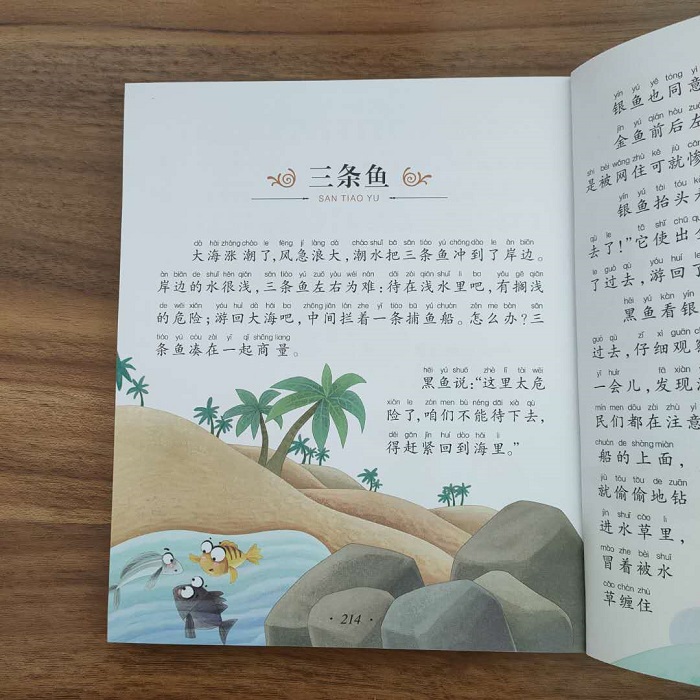 三条鱼
SAN TIAO YU
dà hǎi zhǎng cháo le fēng jí làng dà cháo shuǐ bǎ sān tiáo yú chōng dào le àn biān
大海涨潮了，风急浪大，潮水把三条鱼冲到了岸边。
àn biān de shuǐ hěn qiǎn sān tiáo yú zuǒ yòu wéi nán dāi zài qiǎn shuǐ lǐ ba yǒu gē qiǎn
岸边的水很浅，三条鱼左右为难：待在浅水里吧，有搁浅
de wēi xiǎn yóu huí dà hǎi ba zhōng jiān lán zhe yì tiáo bǔ yú chuán zěn me bàn sān
的危险；游回大海吧，中间拦着一条捕鱼船。怎么办？三
tiáo yú còu zài yì qǐ shāng liang
条鱼凑在一起商量。
hēi yú shuō zhè lǐ tài wēi
黑鱼说：“这里太危
xiǎn le zán men bù néng dāi xià qù
险了，咱们不能待下去，
děi gǎn jǐn huí dào hǎi lǐ
得赶紧回到海里。”
214
yín yú yě tóng yì
银鱼也同意
jīn yú qián hòu zuǒ
金鱼前后左
shì bèi wǎng zhù kě jiù cǎn
是被网住可就惨
yín yú tái tóu
银鱼抬头
qù le tā shǐ chū
去了！”它使出
le guò qù yóu huí le
了过去，游回了
hēi yú kàn yín
黑鱼看银
guò qù zǐ xì guān chá
过去，仔细观察
yí huìr fā xiàn
一会儿，发现
mín men dōu zài zhù yì
民们都在注意
chuán de shàng miàn
船的上面，
jiù tōu tōu de zuān
就偷偷地钻
jìn shuǐ cǎo lǐ
进水草里，
mào zhe bèi shuǐ
冒着被水
cǎo chán zhù
草缠住